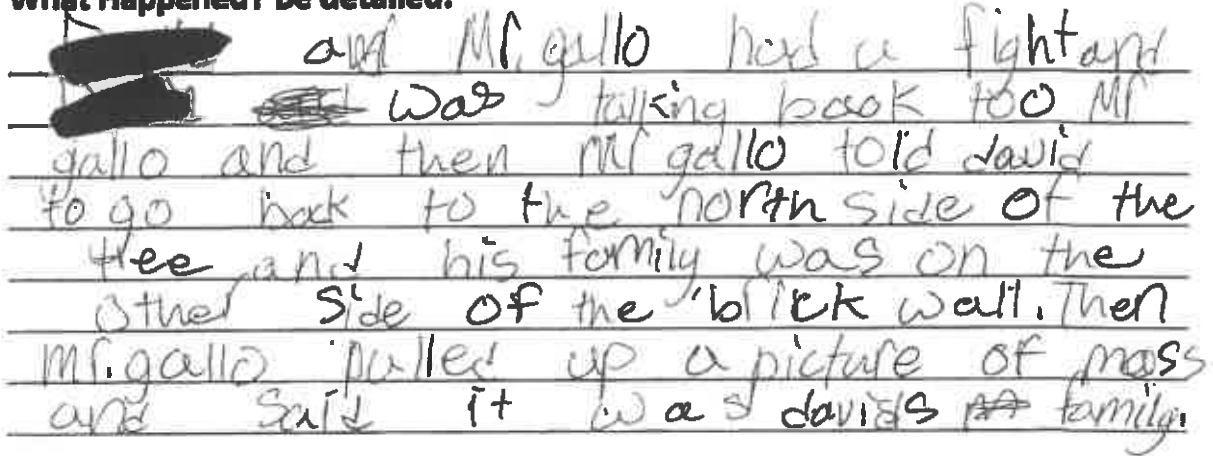 What Happened? Be detailed.
and Mr. gallo had a fight and
was talking back too Mr
gallo and then Mr gallo told david
to go back to the north side of the
tree and his family was on the
other side of the brick wall. Then
Mr. gallo pulled up a picture of mass
and said it was davids family.